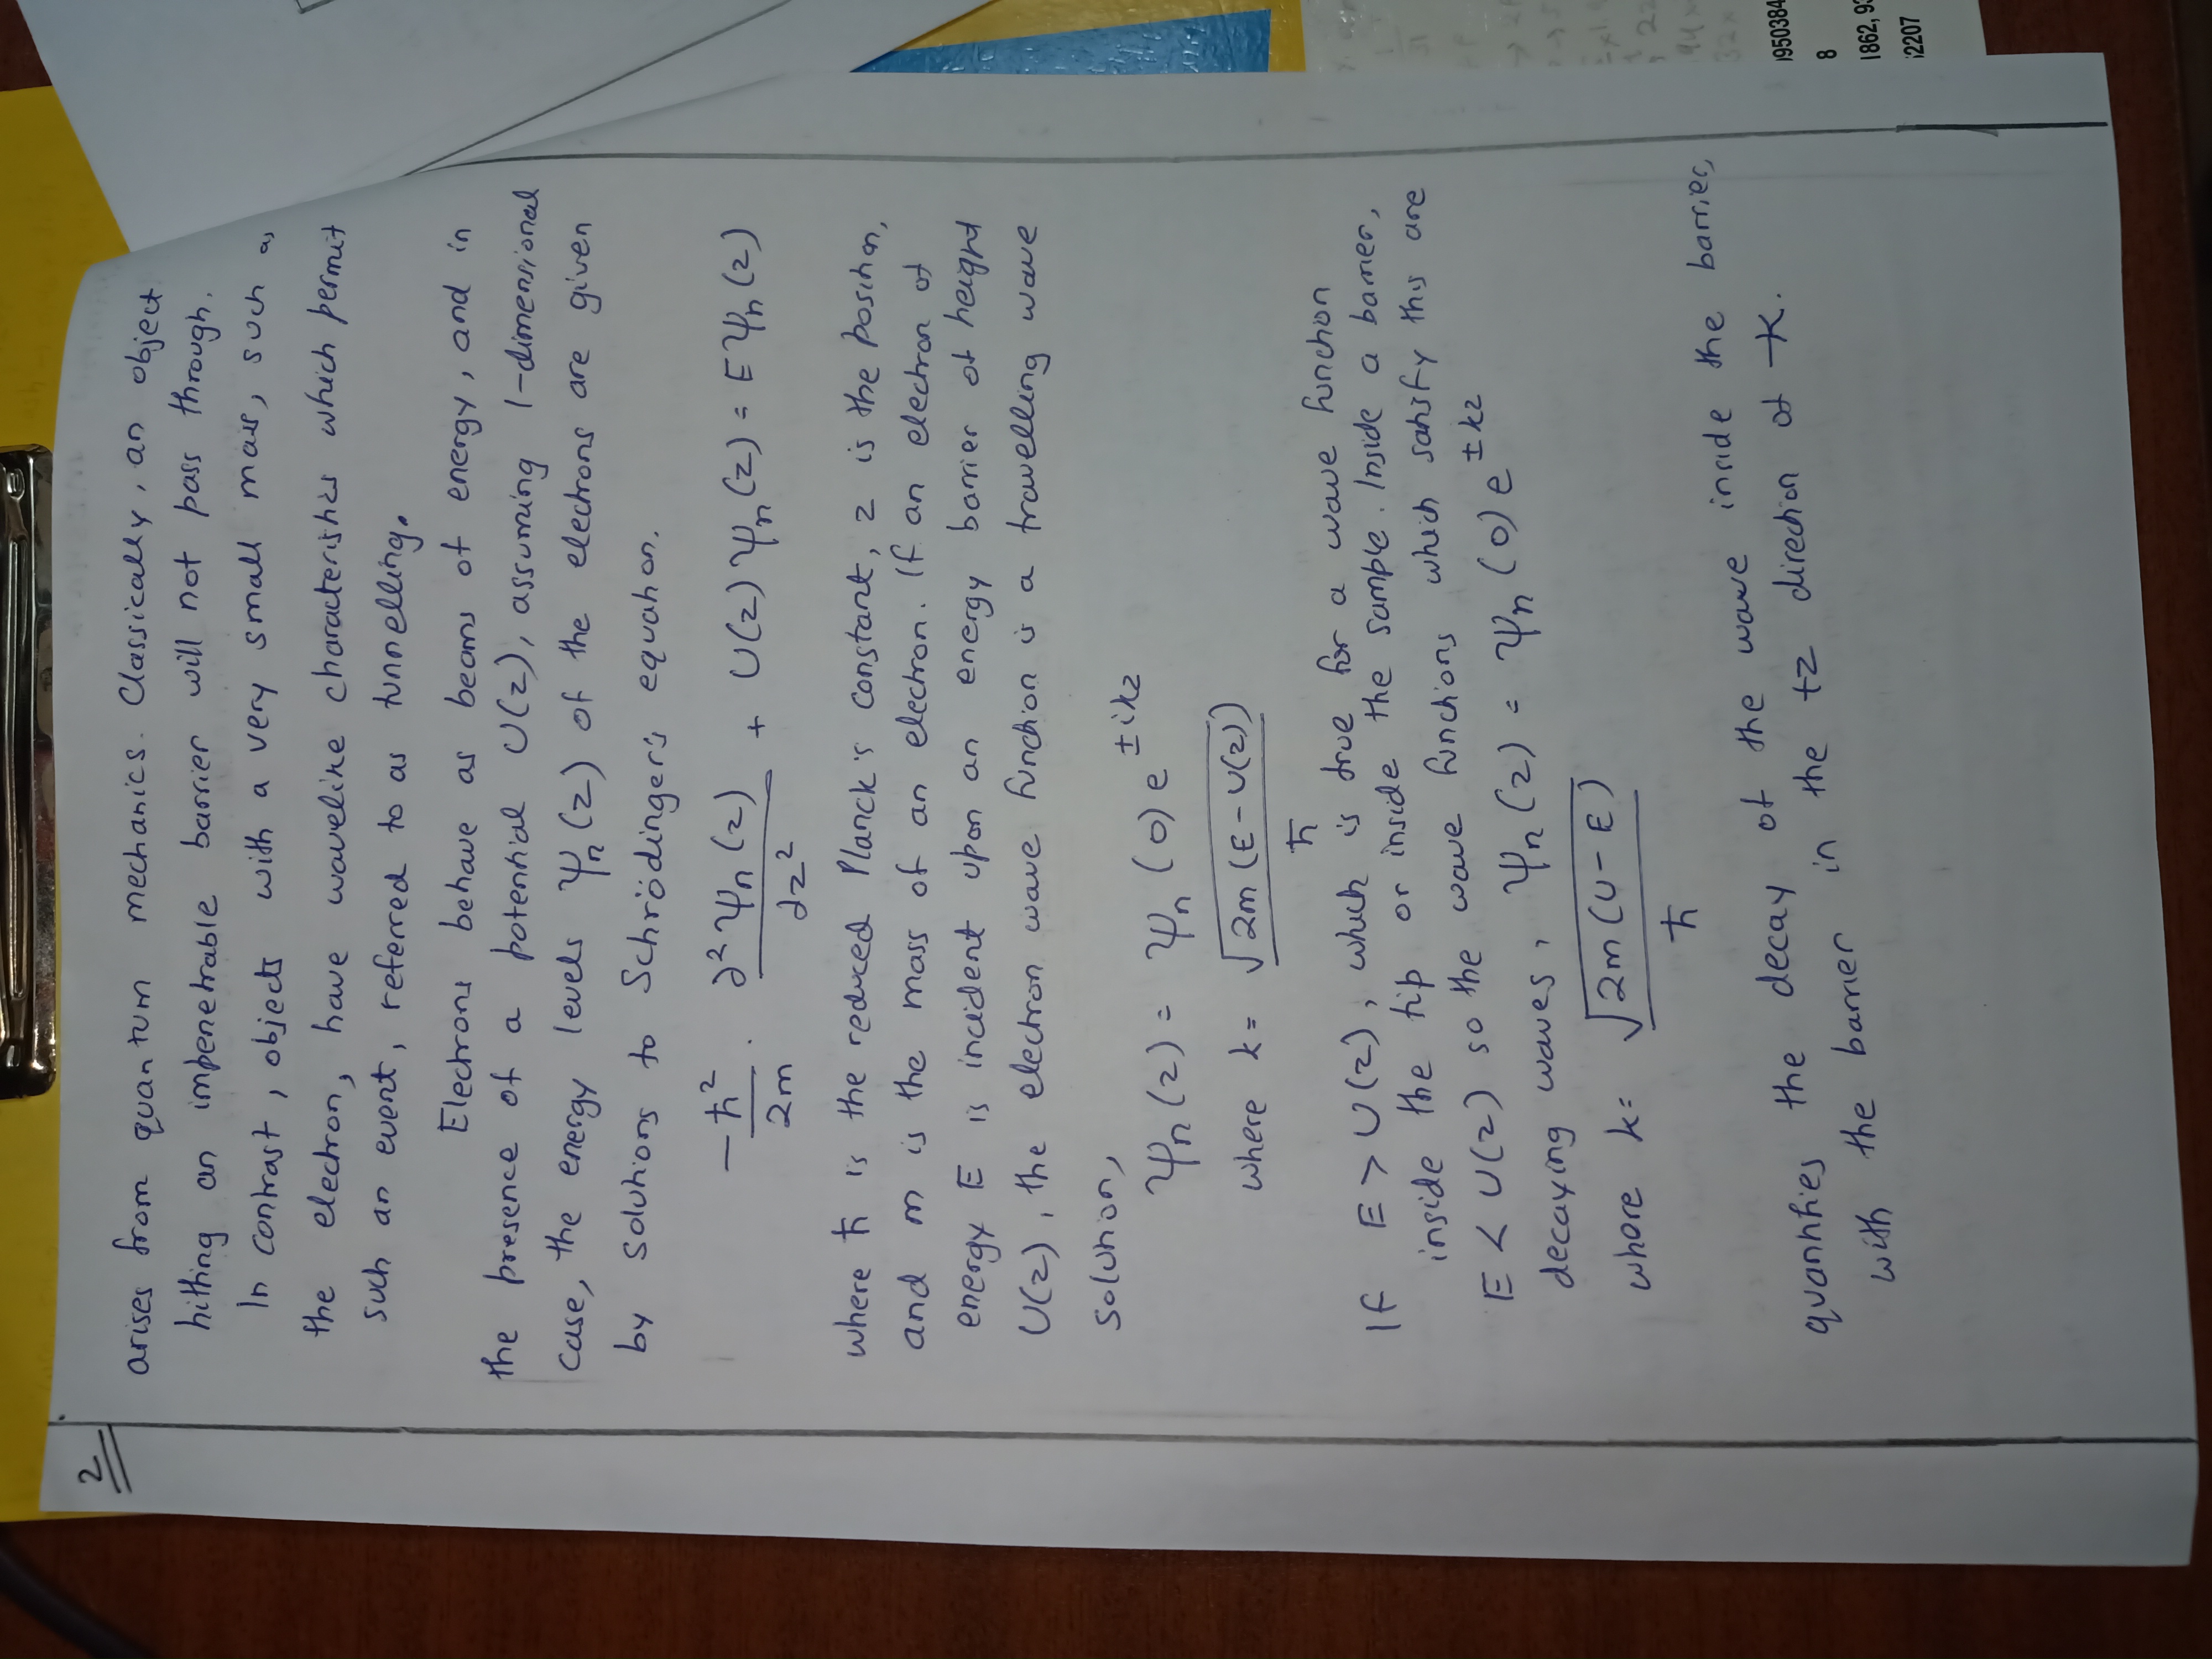 2
arises from quantum mechanics. Classically, an object
hitting an impenetrable barrier will not pass through.
In contrast, objects with a very small mass, such as
the electron, have wavelike characteristics which permit
such an event, referred to as tunnelling.
Electrons behave as beams of energy, and in
the presence of a potential U(z), assuming 1-dimensional
case, the energy levels Ψn(z) of the electrons are given
by solutions to Schrödinger's equation.
-ħ²/2m · ∂²Ψn(z)/∂z² + U(z)Ψn(z) = EΨn(z)
where ħ is the reduced Planck's constant, z is the position,
and m is the mass of an electron. If an electron of
energy E is incident upon an energy barrier of height
U(z), the electron wave function is a travelling wave
solution,
Ψn(z) = Ψn(0)e^±ikz
where k = √2m(E-U(z))/ħ
If E > U(z), which is true for a wave function
inside the tip or inside the sample. Inside a barrier,
E < U(z) so the wave functions which satisfy this are
decaying waves, Ψn(z) = Ψn(0)e^±kz
where k = √2m(U-E)/ħ
quantifies the decay of the wave inside the barrier,
with the barrier in the +z direction of -k.
8
1862, 93